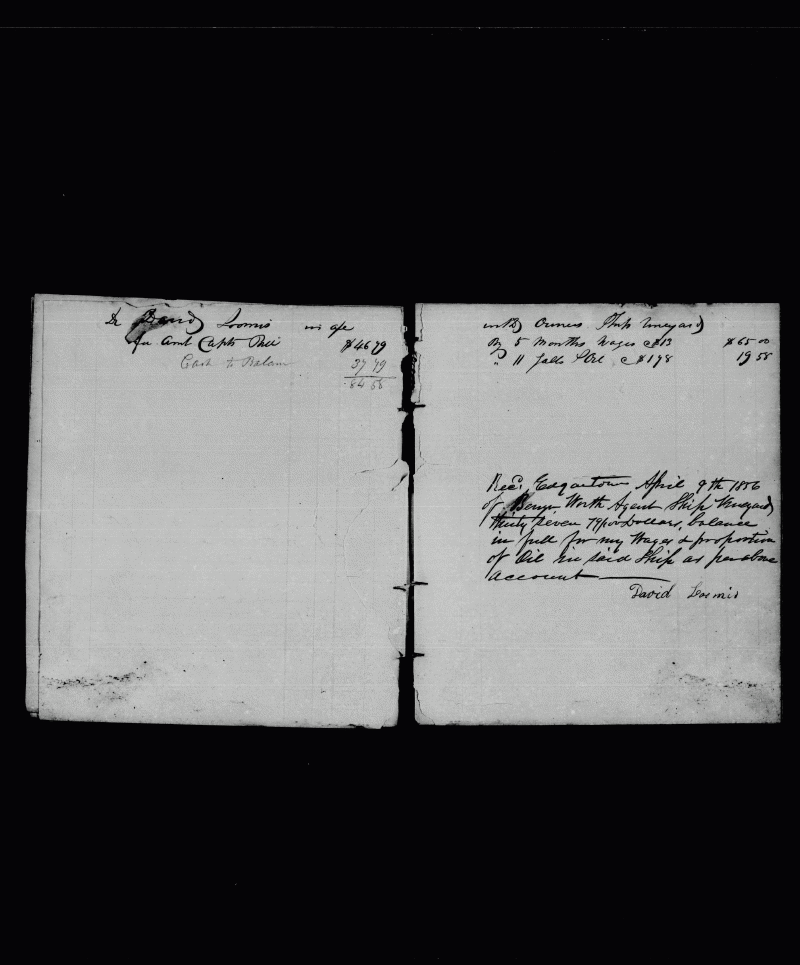 Dr David Loomis in a/c
To Amt Capts Bill $46 79
Cash to Balance 37 79
84 58
with Owners Ship Vineyard
By 5 Months Wages @ $13 $65 00
" 11 galls Oil @ $1 78 19 58
Recd, Edgartown April 9th 1856
of Benjn Worth Agent Ship Vineyard
thirty seven 79/100 Dollars, balance
in full for my Wages & proportion
of Oil in said Ship as per above
account
David Loomis